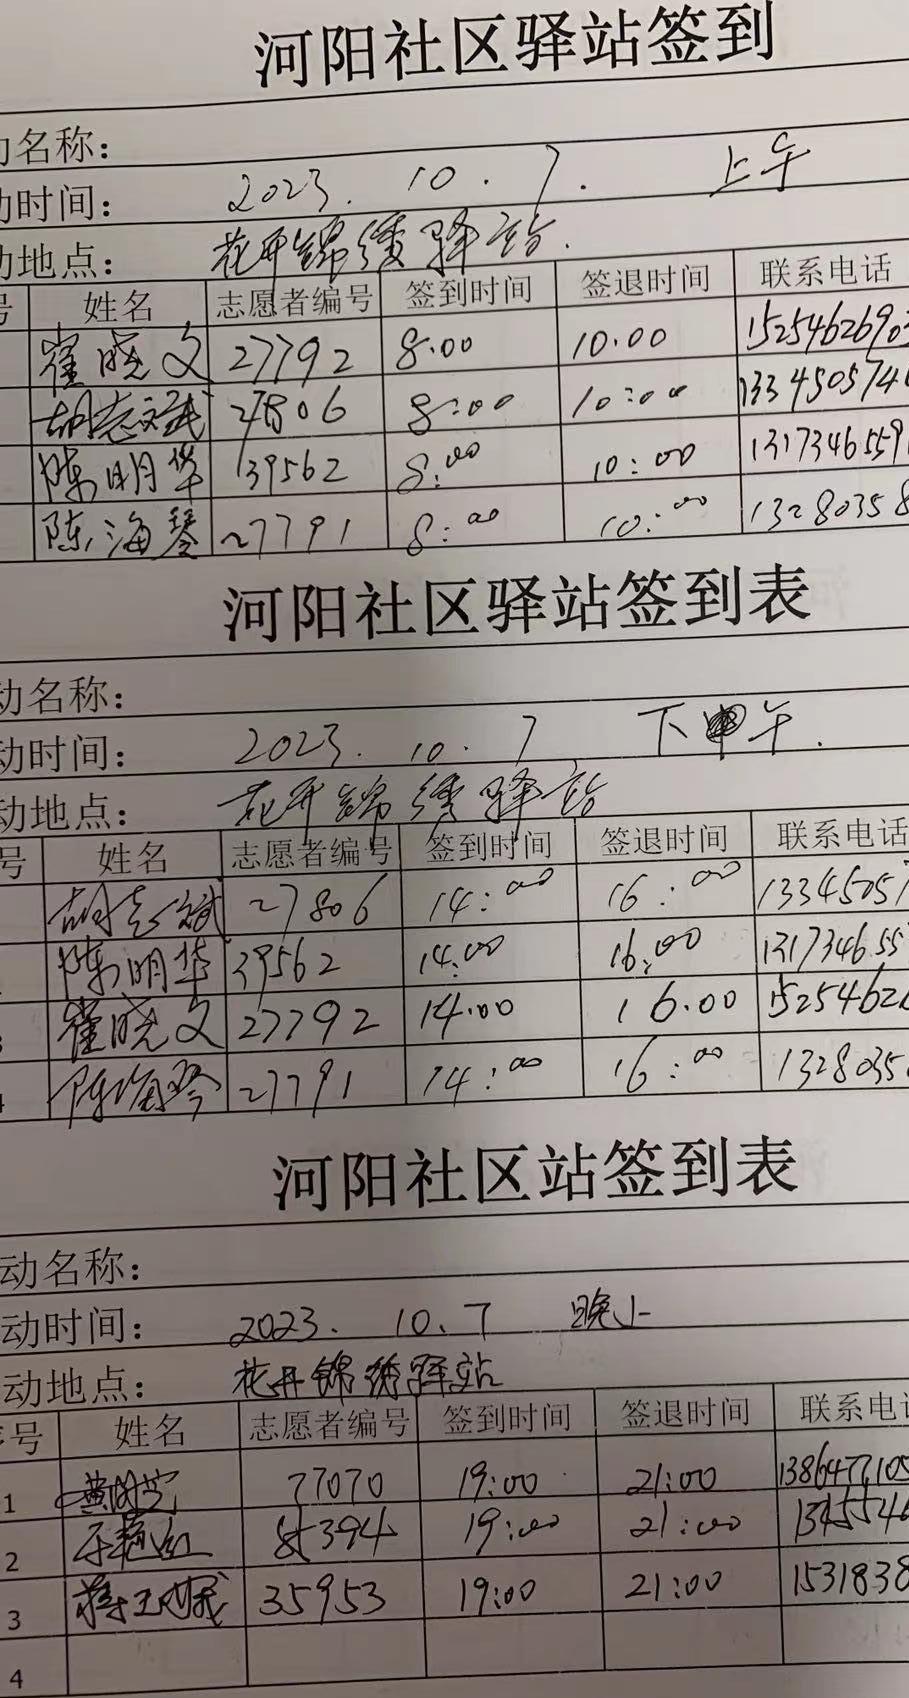 河阳社区驿站签到
动名称：
动时间： 2023. 10. 7. 上午
动地点： 花开锦绣驿站.
号 姓名 志愿者编号 签到时间 签退时间 联系电话
崔晓文 27792 8.00 10.00 1525462690
胡志斌 27806 8:00 10:00 133450574
陈明华 39562 8:00 10:00 1317346559
陈海琴 27791 8:00 10:00 13280358
河阳社区驿站签到表
动名称：
动时间： 2023. 10. 7 下午.
动地点： 花开锦绣驿站
号 姓名 志愿者编号 签到时间 签退时间 联系电话
胡志斌 27806 14:00 16:00 1334505
陈明华 39562 14:00 16:00 131734655
崔晓文 27792 14.00 16.00 1525462
陈海琴 27791 14:00 16:00 1328035
河阳社区站签到表
动名称：
动时间： 2023. 10. 7 晚上
动地点： 花开锦绣驿站
序号 姓名 志愿者编号 签到时间 签退时间 联系电话
1 77070 19:00 21:00 1386477105
2 19:00 21:00 134554
3 35953 19:00 21:00 1531838
4